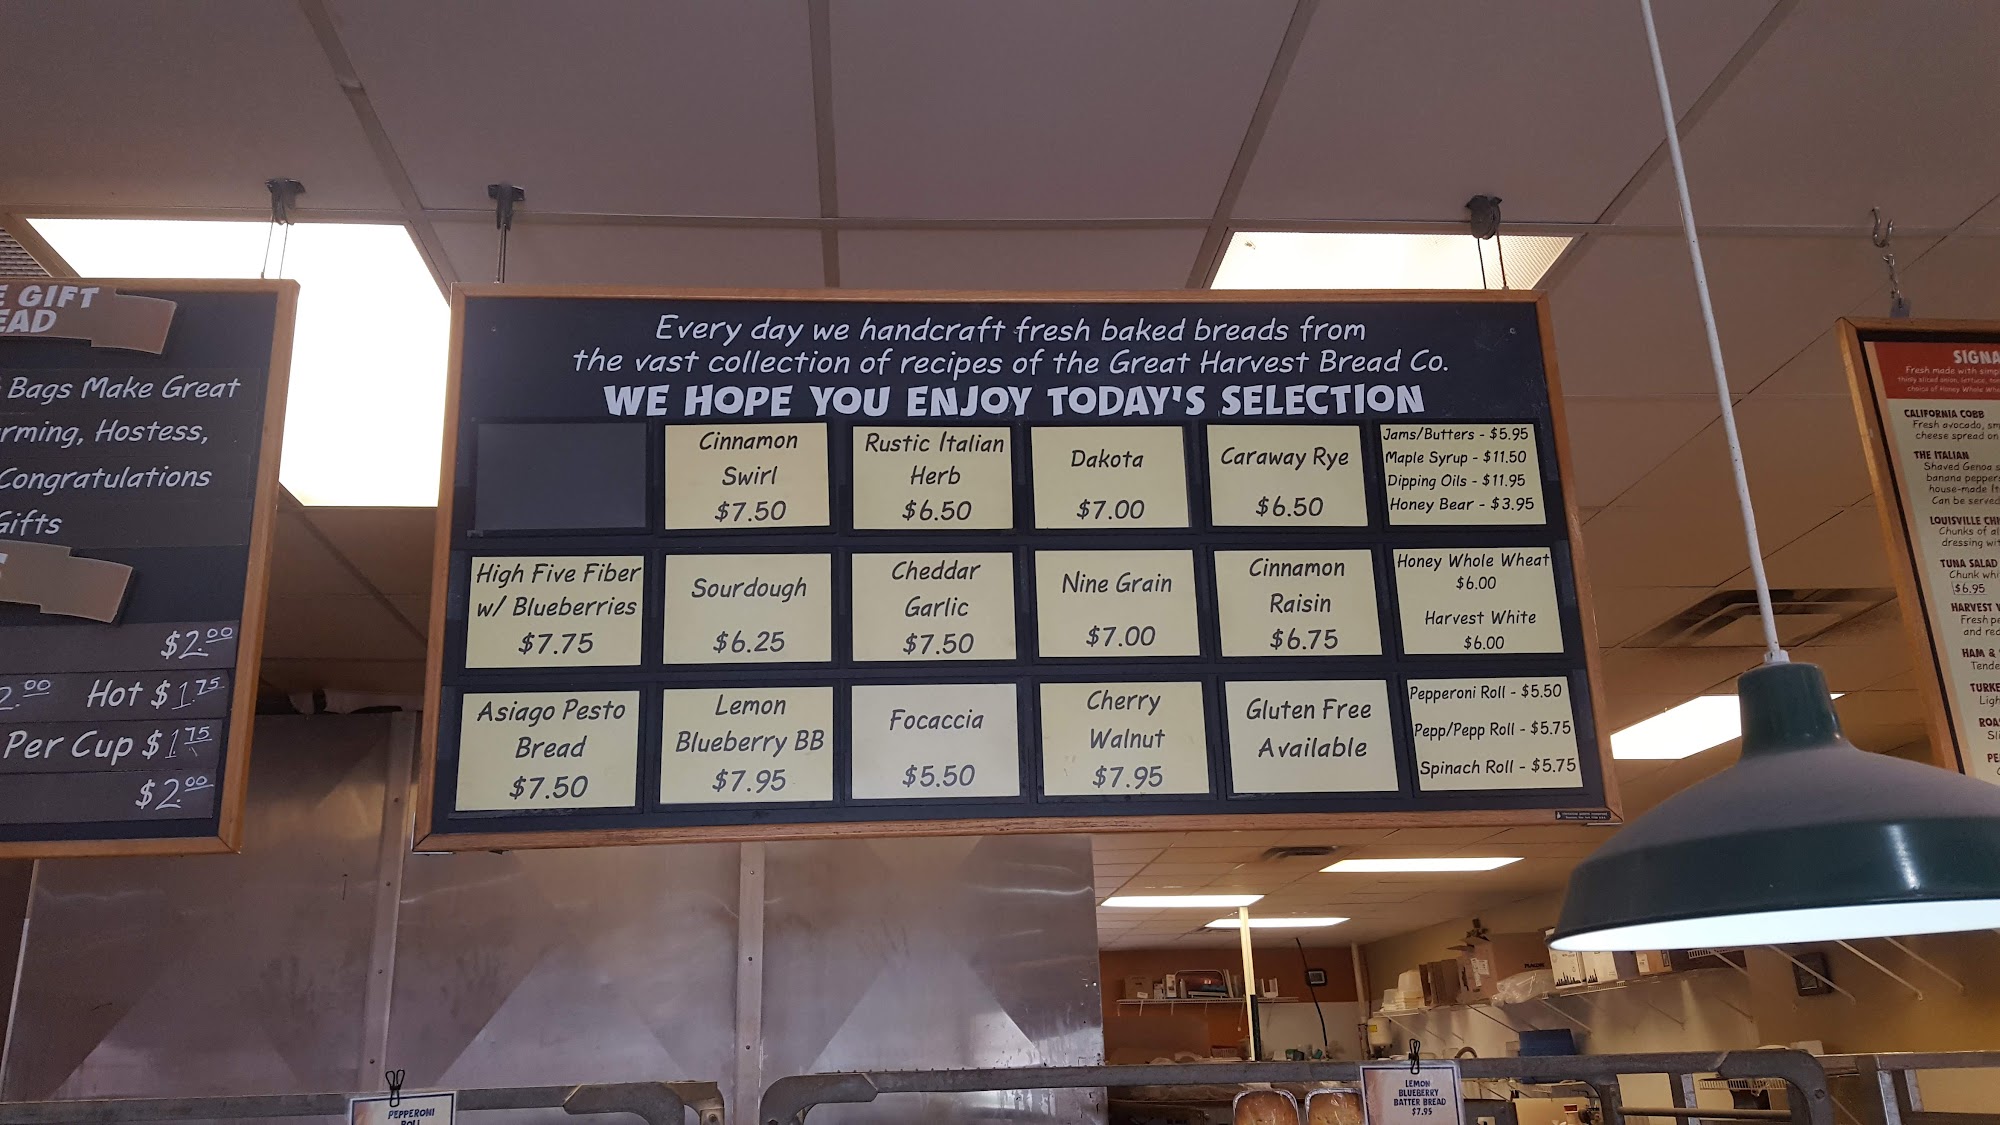 GIFT
Bags Make Great
Hostess,
Congratulations
Gifts
$2.00
2.00 Hot $1.75
Per Cup $1.75
$2.00
Every day we handcraft fresh baked breads from
the vast collection of recipes of the Great Harvest Bread Co.
WE HOPE YOU ENJOY TODAY'S SELECTION
Cinnamon
Swirl
$7.50
Rustic Italian
Herb
$6.50
Dakota
$7.00
Caraway Rye
$6.50
Jams/Butters - $5.95
Maple Syrup - $11.50
Dipping Oils - $11.95
Honey Bear - $3.95
High Five Fiber
w/ Blueberries
$7.75
Sourdough
$6.25
Cheddar
Garlic
$7.50
Nine Grain
$7.00
Cinnamon
Raisin
$6.75
Honey Whole Wheat
$6.00
Harvest White
$6.00
Asiago Pesto
Bread
$7.50
Lemon
Blueberry BB
$7.95
Focaccia
$5.50
Cherry
Walnut
$7.95
Gluten Free
Available
Pepperoni Roll - $5.50
Pepp/Pepp Roll - $5.75
Spinach Roll - $5.75
SIGNA
Fresh made with simp
CALIFORNIA COBB
Fresh avocado, sm
cheese spread on
THE ITALIAN
Shaved Genoa s
banana peppers
house-made It
Can be served
LOUISVILLE CHI
Chunks of al
dressing wit
TUNA SALAD
Chunk whi
$6.95
HARVEST V
Fresh pe
and red
HAM &
Tende
TURKE
Ligh
ROA
Sli
PE
PEPPERONI
ROLL
LEMON
BLUEBERRY
BATTER BREAD
$7.95